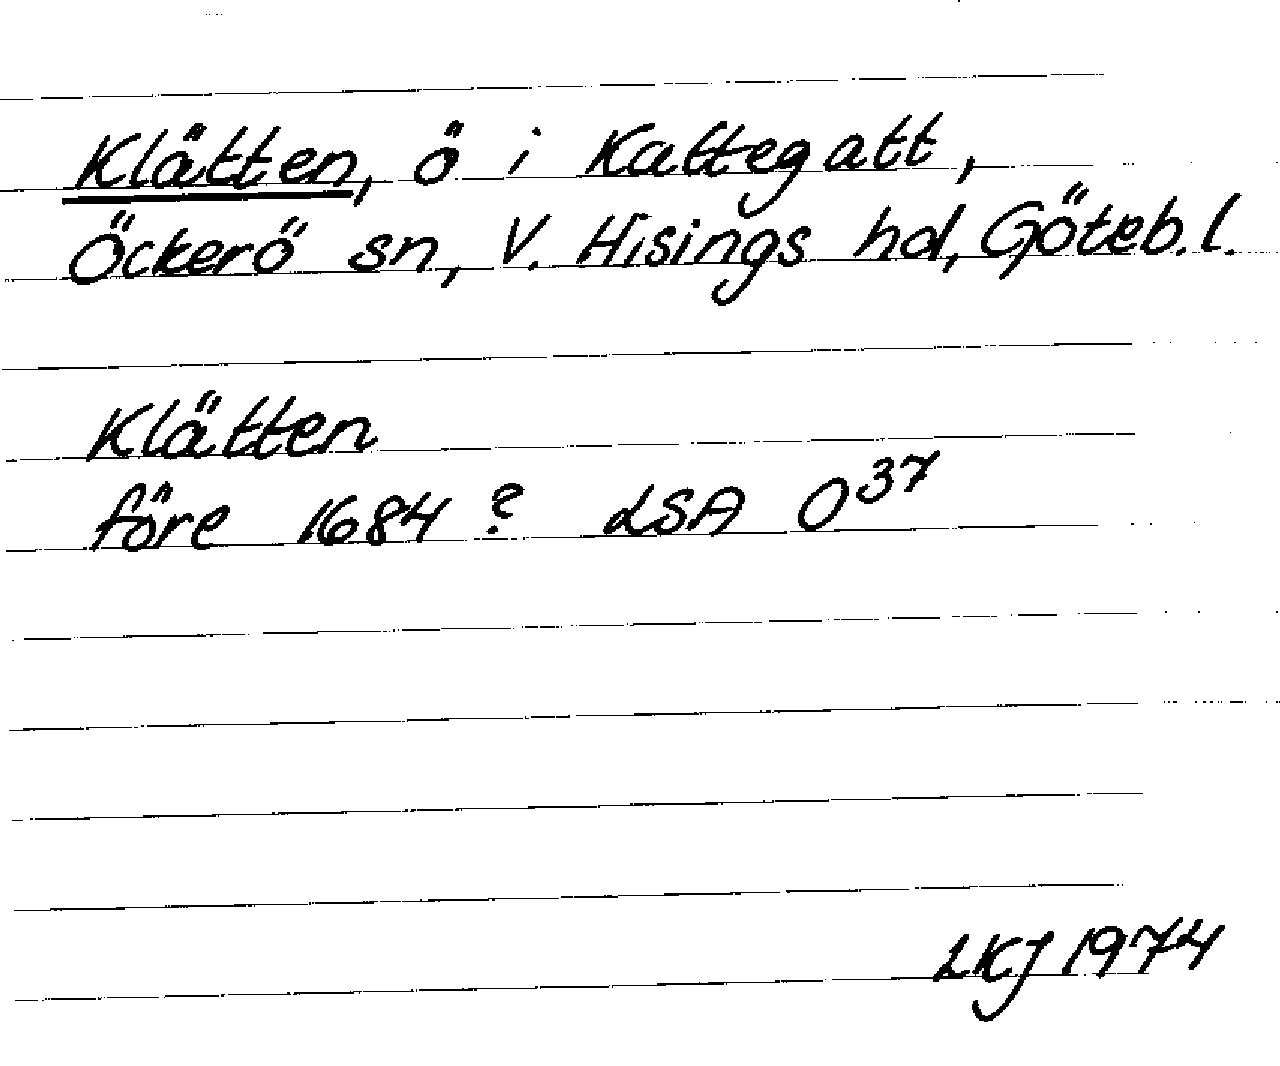 Klätten, ö i Kattegatt,
Öckerö sn, V. Hisings hd, Göteb. l.
Klätten
före 1684 ? LSA O³⁷
LKJ 1974